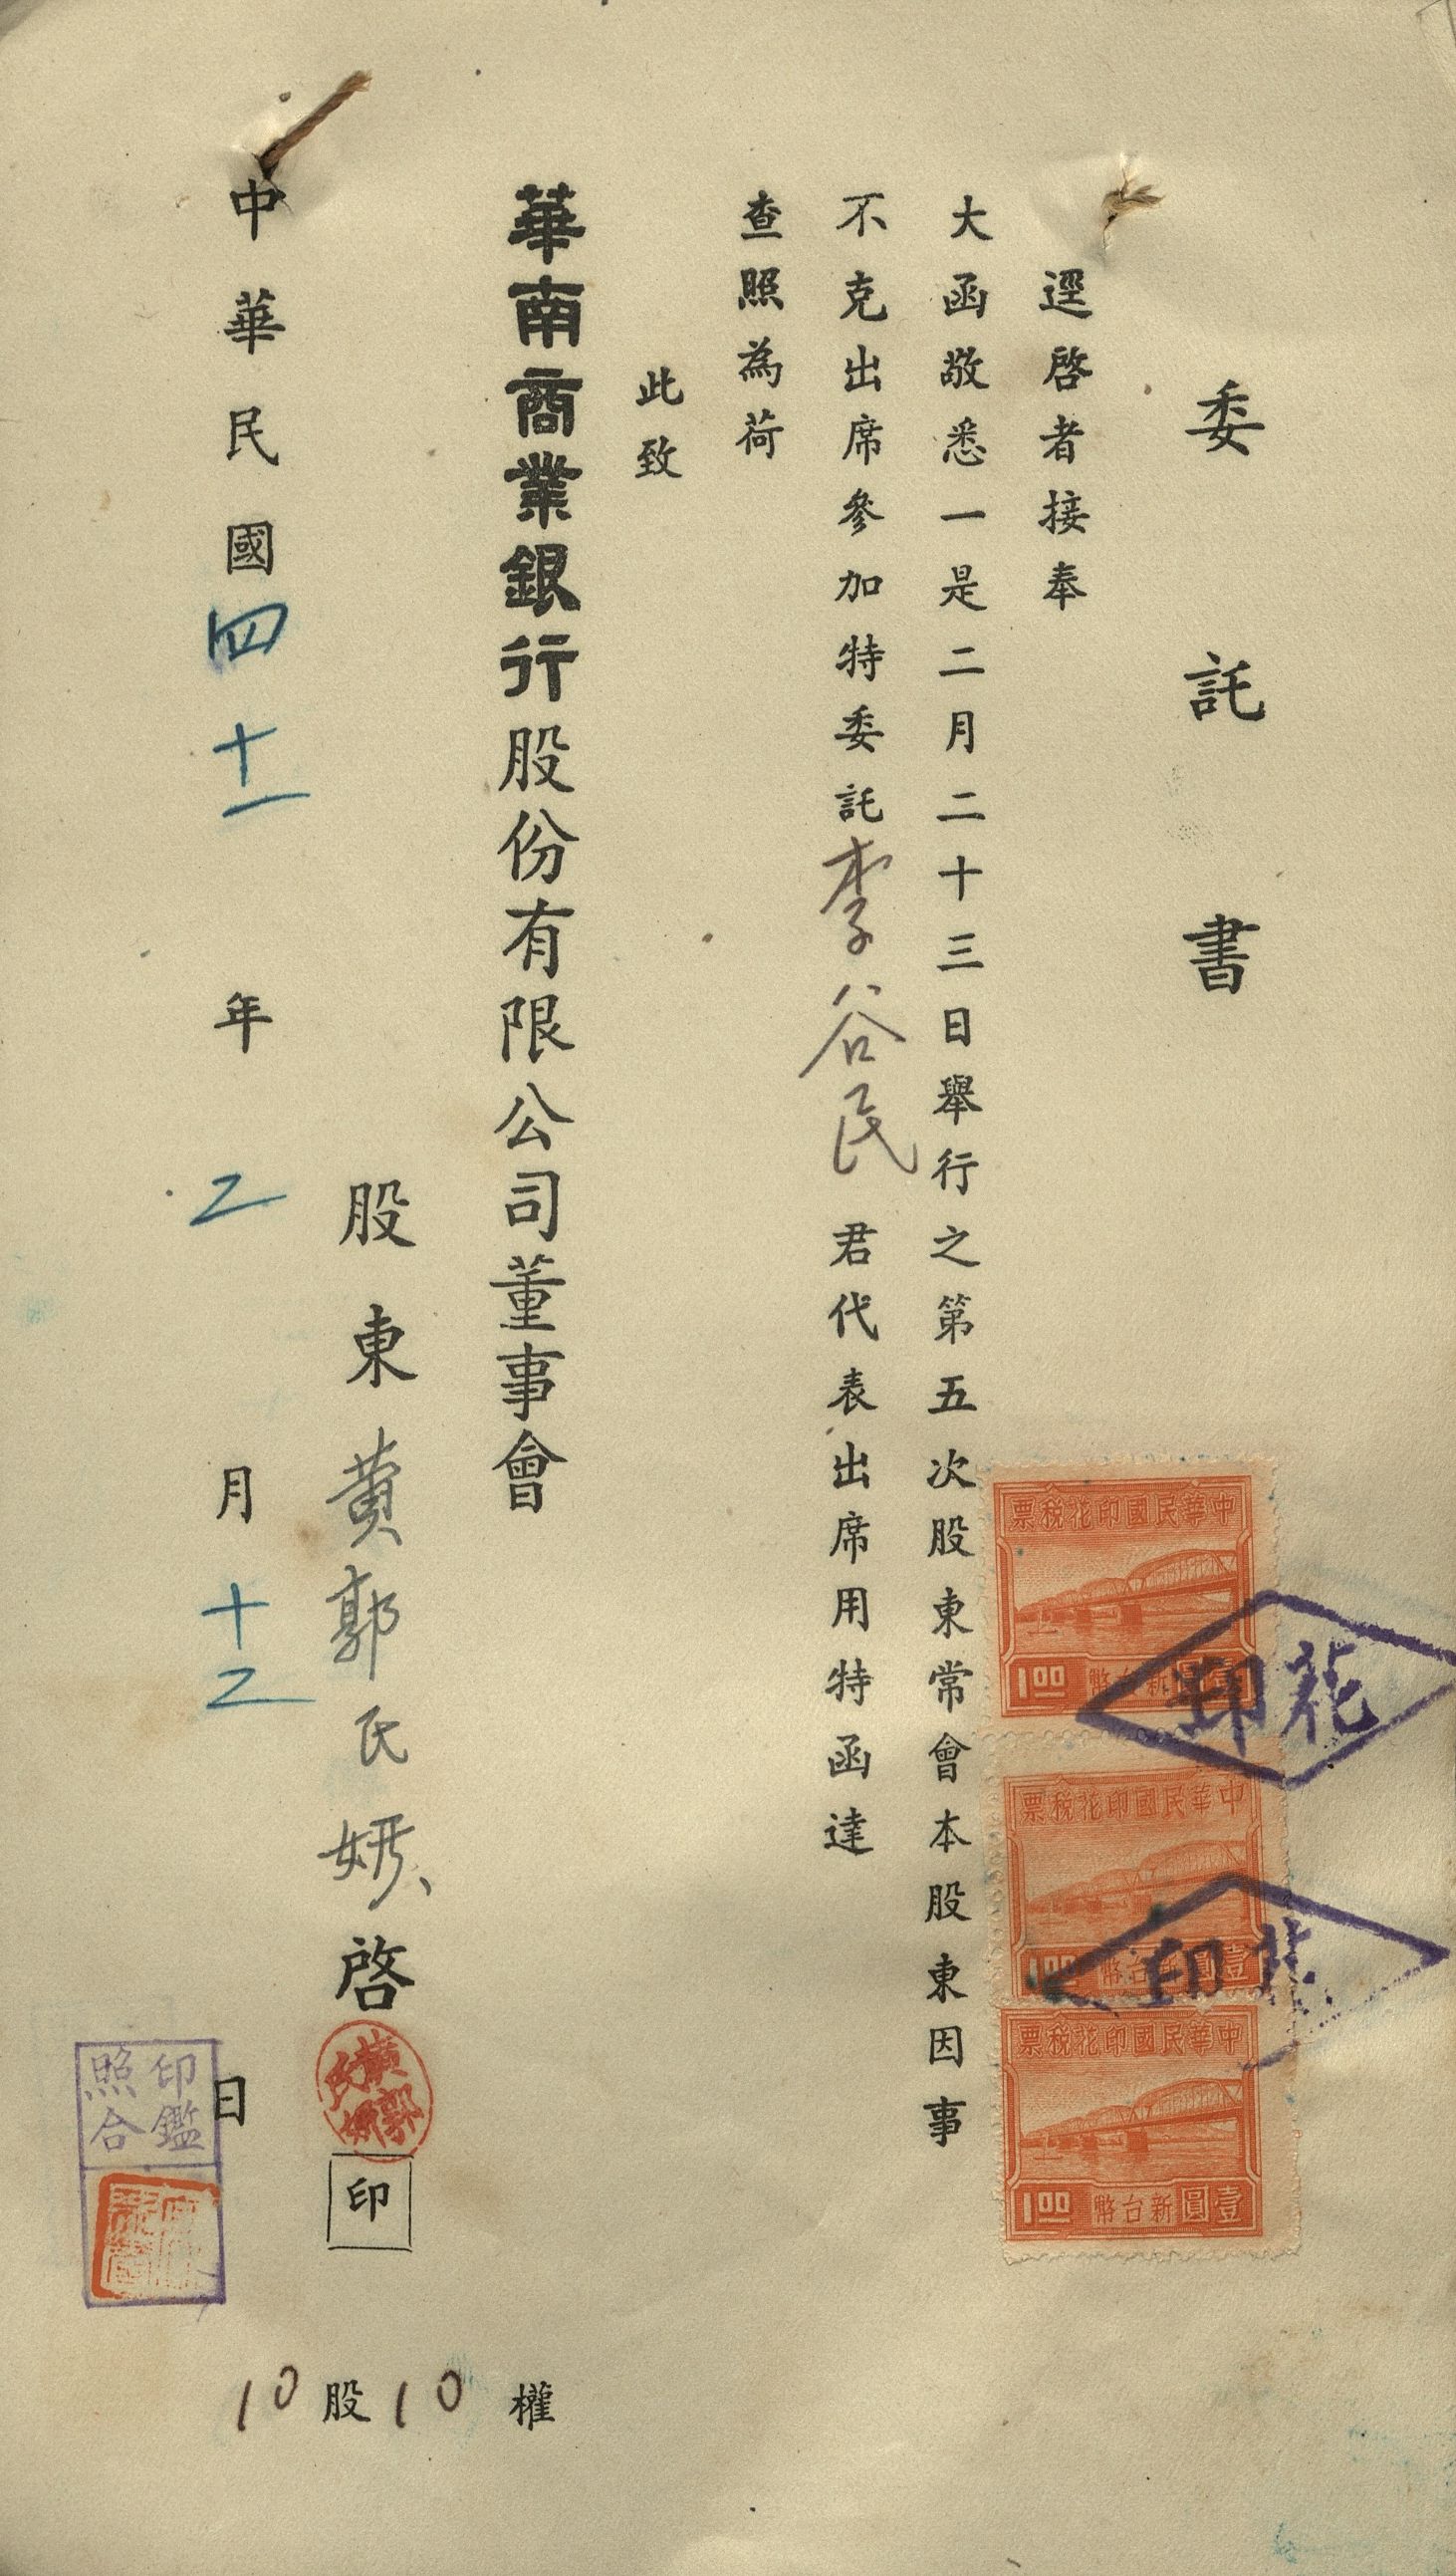 委託書
逕啓者接奉
大函敬悉一是二月二十三日舉行之第五次股東常會本股東因事
不克出席參加特委託李谷民君代表出席用特函達
查照為荷
此致
華南商業銀行股份有限公司董事會
股東黄郭氏妍啓
印
中華民國四十一年二月十二日
10股10權
中華民國印花稅票
1.00
新台幣壹圓
中華民國印花稅票
1.00
新台幣壹圓
中華民國印花稅票
1.00
新台幣壹圓
花印
花印
黃郭氏妍
印鑑
照合